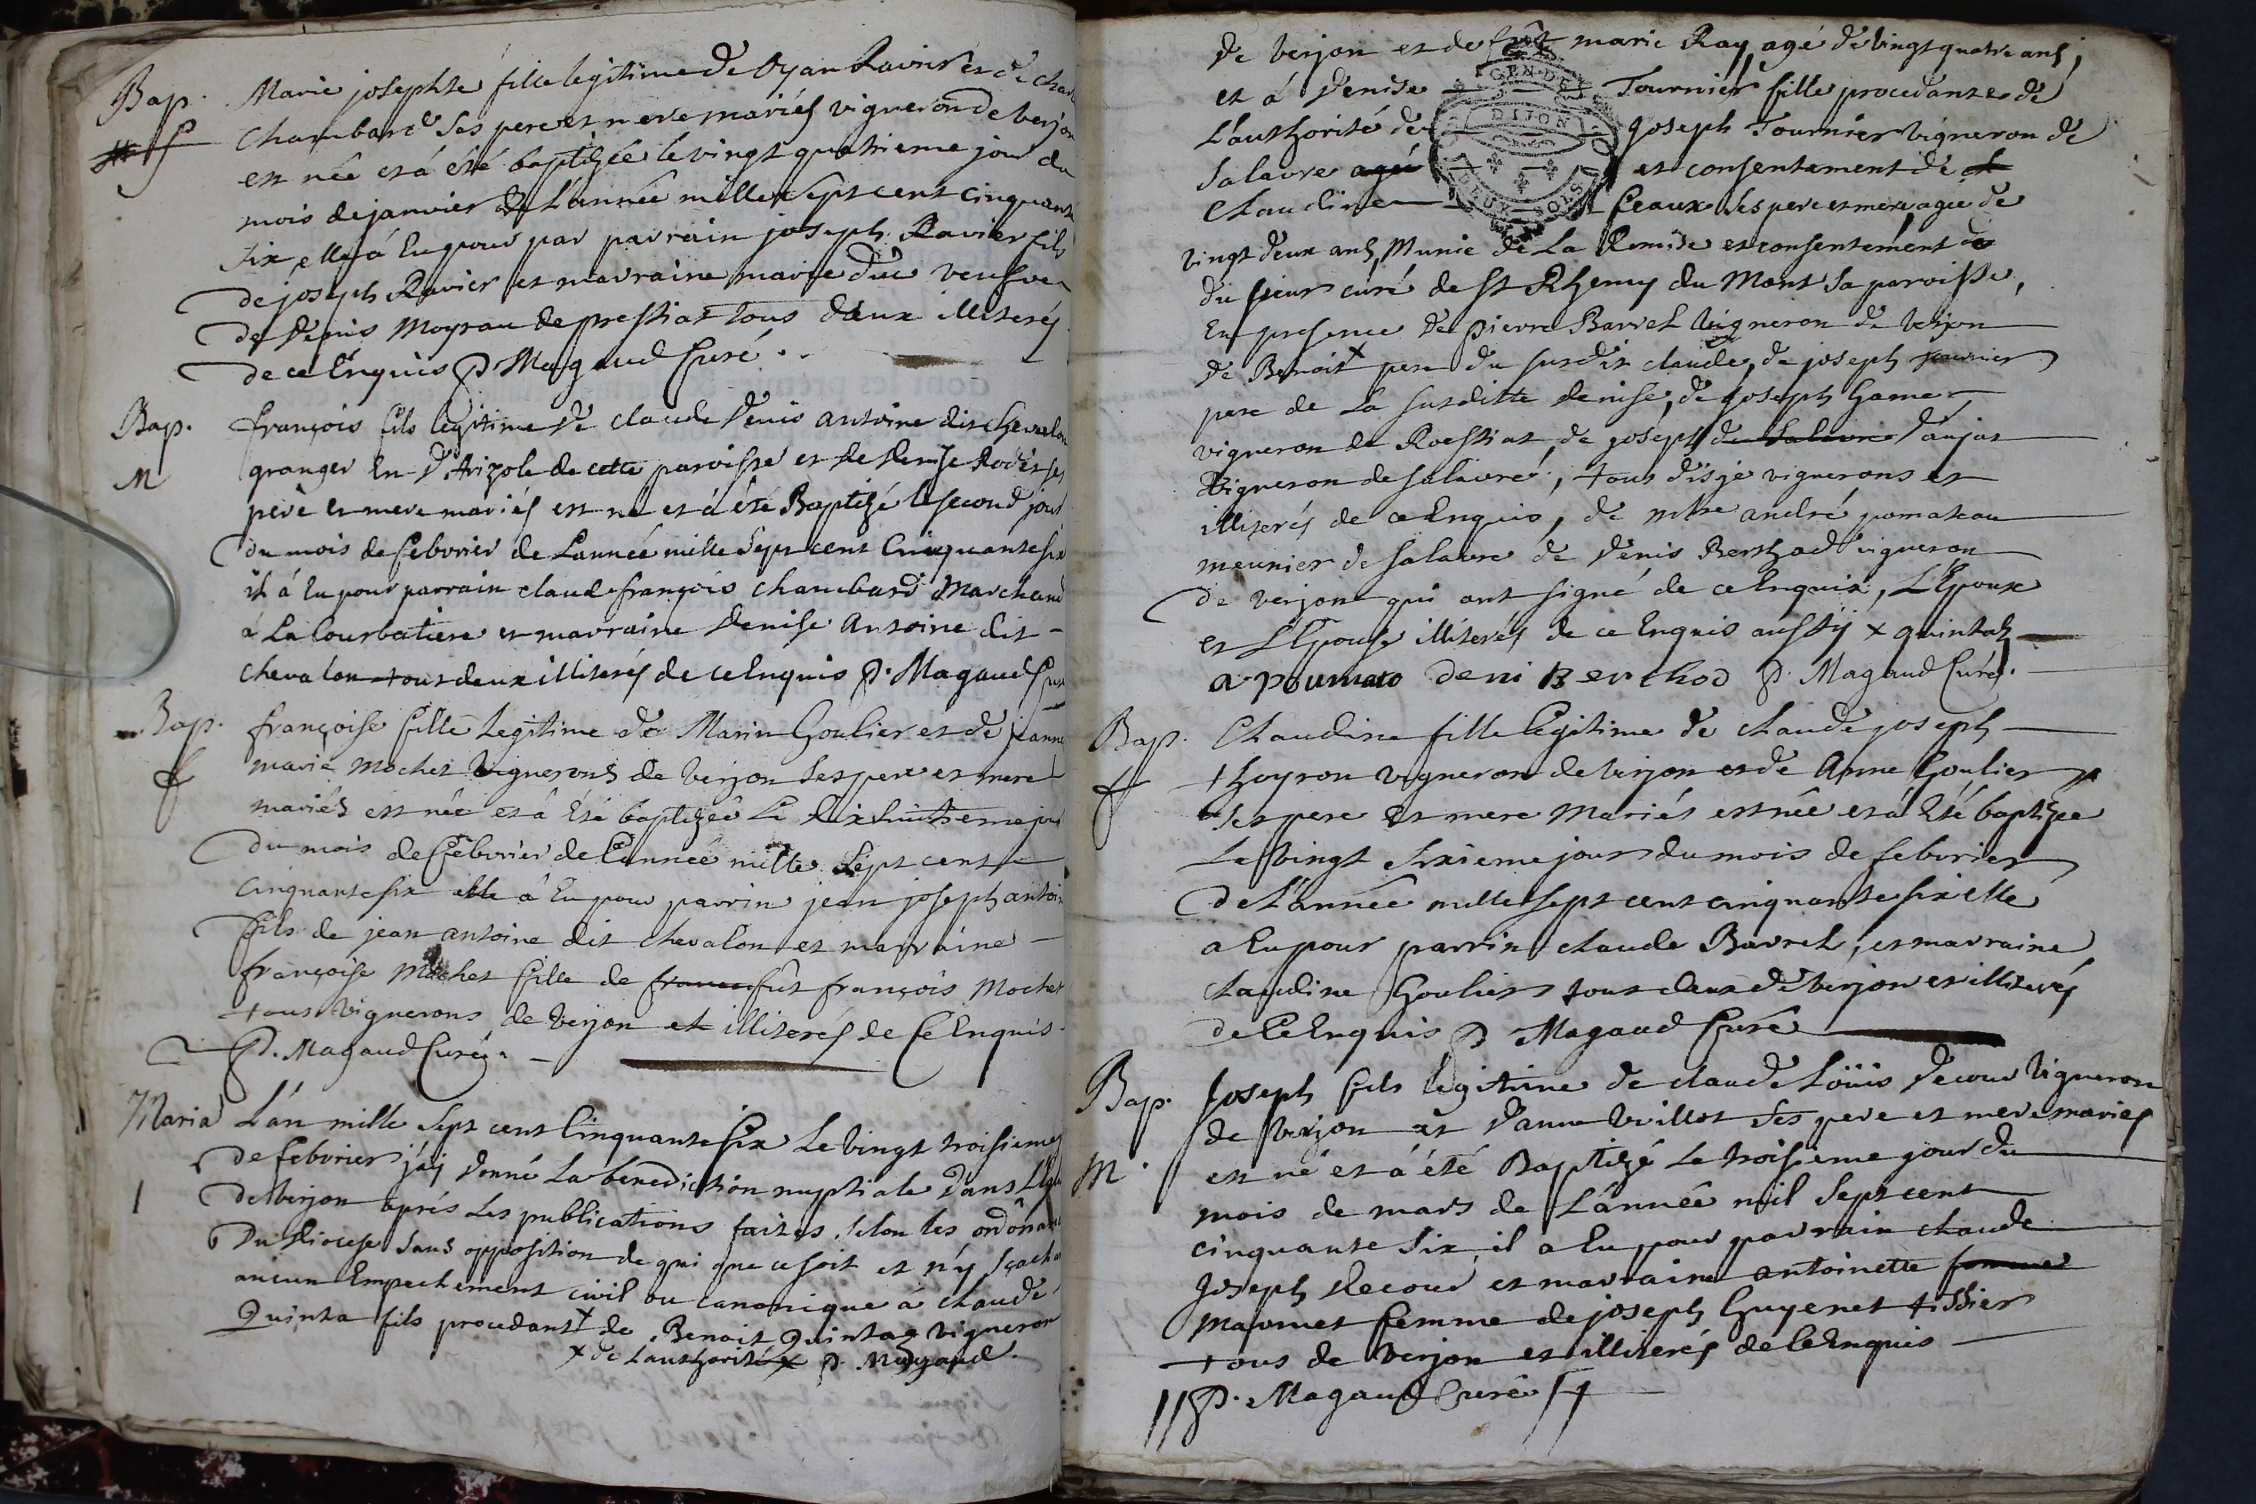 Bap.
f
Marie josephte fille legitime de Oyan Ravier et de
Chambard ses pere et mere mariés vigneron de verjon
est née et á été baptizée le vingt quatrieme jour du
mois de janvier de L'année mille sept cent cinquante
six elle á Eu pour par parrain joseph Ravier fils
de joseph Ravier et marraine marie duc veufve
de denis Moyrau de pressiat tous deux illiterés
de ce Enquis P. Magaud Curé.
Bap.
M
françois fils legitime de claude denis antoine dit chevalon
granger En d'Arizole de cette paroisse et de denise ses
pere et mere mariés est né et á été Baptizé le second jour
du mois de febvrier de L'année mille sept cent Cinquante six
il á Eu pour parrain claude françois chambard Marchand
á La Courbatiere et marraine denise Antoine dit
chevalon tous deux illiterés de ce Enquis P. Magaud Curé
Bap.
f
françoise fille Legitime de Marin Goulier et de jeanne
marie mochet vignerons de verjon ses pere et mere
mariés est née et á Eté baptizée Le dix huitieme jour
du mois de febvrier de L'année mille sept cent
cinquante six elle á Eu pour parrin jean joseph antoine
fils de jean antoine dit chevalon et marraine
françoise Mochet fille de fût françois Mochet
tous vignerons de verjon et illiterés de Ce Enquis.
P. Magaud Curé.
Maria
1
L'an mille sept cent Cinquante six Le vingt troisieme
de febvrier j'ay donné La benediction nuptiale dans L'Eglise
de verjon aprés Les publications faites selon les ordônances
Du diocese sans opposition de qui que ce soit et n'y sçachant
aucun Empechement civil ou canonique á claude
Quinta fils procedant x de Benoit Quinta vigneron
x de L'authorité x P. Magaud.
de verjon et de fût marie Ray, agé de vingt quatre ans,
et á denise Tournier fille procedante de
L'authorité de joseph Tournier vigneron de
Salavre agée et consentement de
Claudine Ceaux ses pere et mere, agée de
vingt deux ans, Munie de La Remise et consentement de
du sieur curé de St Rhemy du Mont sa paroisse,
En presence de pierre Barrel vigneron de verjon
de Benoit x pere du susdit claude, de joseph tournier
pere de La susditte denise, de joseph Game
vigneron de Roessiat, de joseph de Salavre danjat
vigneron de salavre, tous disje vignerons et
illiterés de ce Enquis, de mtre andré pomateau
meunier de salavre de denis Berthod vigneron
de verjon qui ont signé de ce Enquis, L'Epoux
et L'Epouse illiterés de ce Enquis aussÿ x quintas
a poumato deni Berthod P. Magaud Curé.
Bap.
f
Claudine fille legitime de claude joseph
thoyron vigneron de verjon et de Anne Goulier
ses pere et mere Mariés est née et á Eté baptizée
Le vingt sixieme jour du mois de febvrier
de L'année mille sept cent cinquante six elle
a Eu pour parrin claude Barrel, et marraine
claudine Goulier tous deux de verjon et illiterés
de Ce Enquis P. Magaud Curé
Bap.
M.
Joseph fils legitime de claude Loüis decour vigneron
de verjon et d'anne Vuillot ses pere et mere mariés
est né et á été Baptizé Le troisieme jour du
mois de mars de L'année mil sept cent
cinquante six, il a Eu pour parrain claude
joseph decour et marraine antoinette femme
Marmet femme de joseph Guyenet tissier
tous de verjon et illiterés de Ce Enquis
P. Magaud Curé
GEN. DE
DIJON
DEUX SOLS